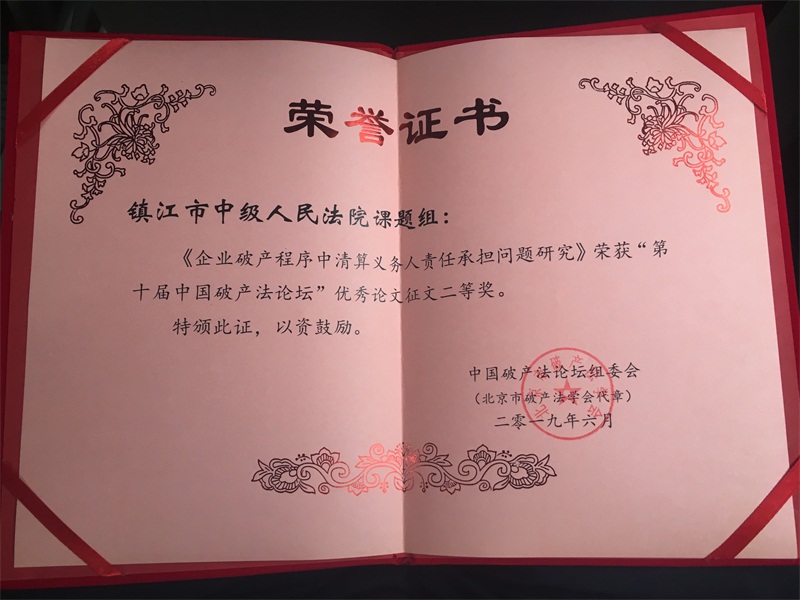 荣誉证书
镇江市中级人民法院课题组：
《企业破产程序中清算义务人责任承担问题研究》荣获“第
十届中国破产法论坛”优秀论文征文二等奖。
特颁此证，以资鼓励。
中国破产法论坛组委会
（北京市破产法学会代章）
二零一九年六月